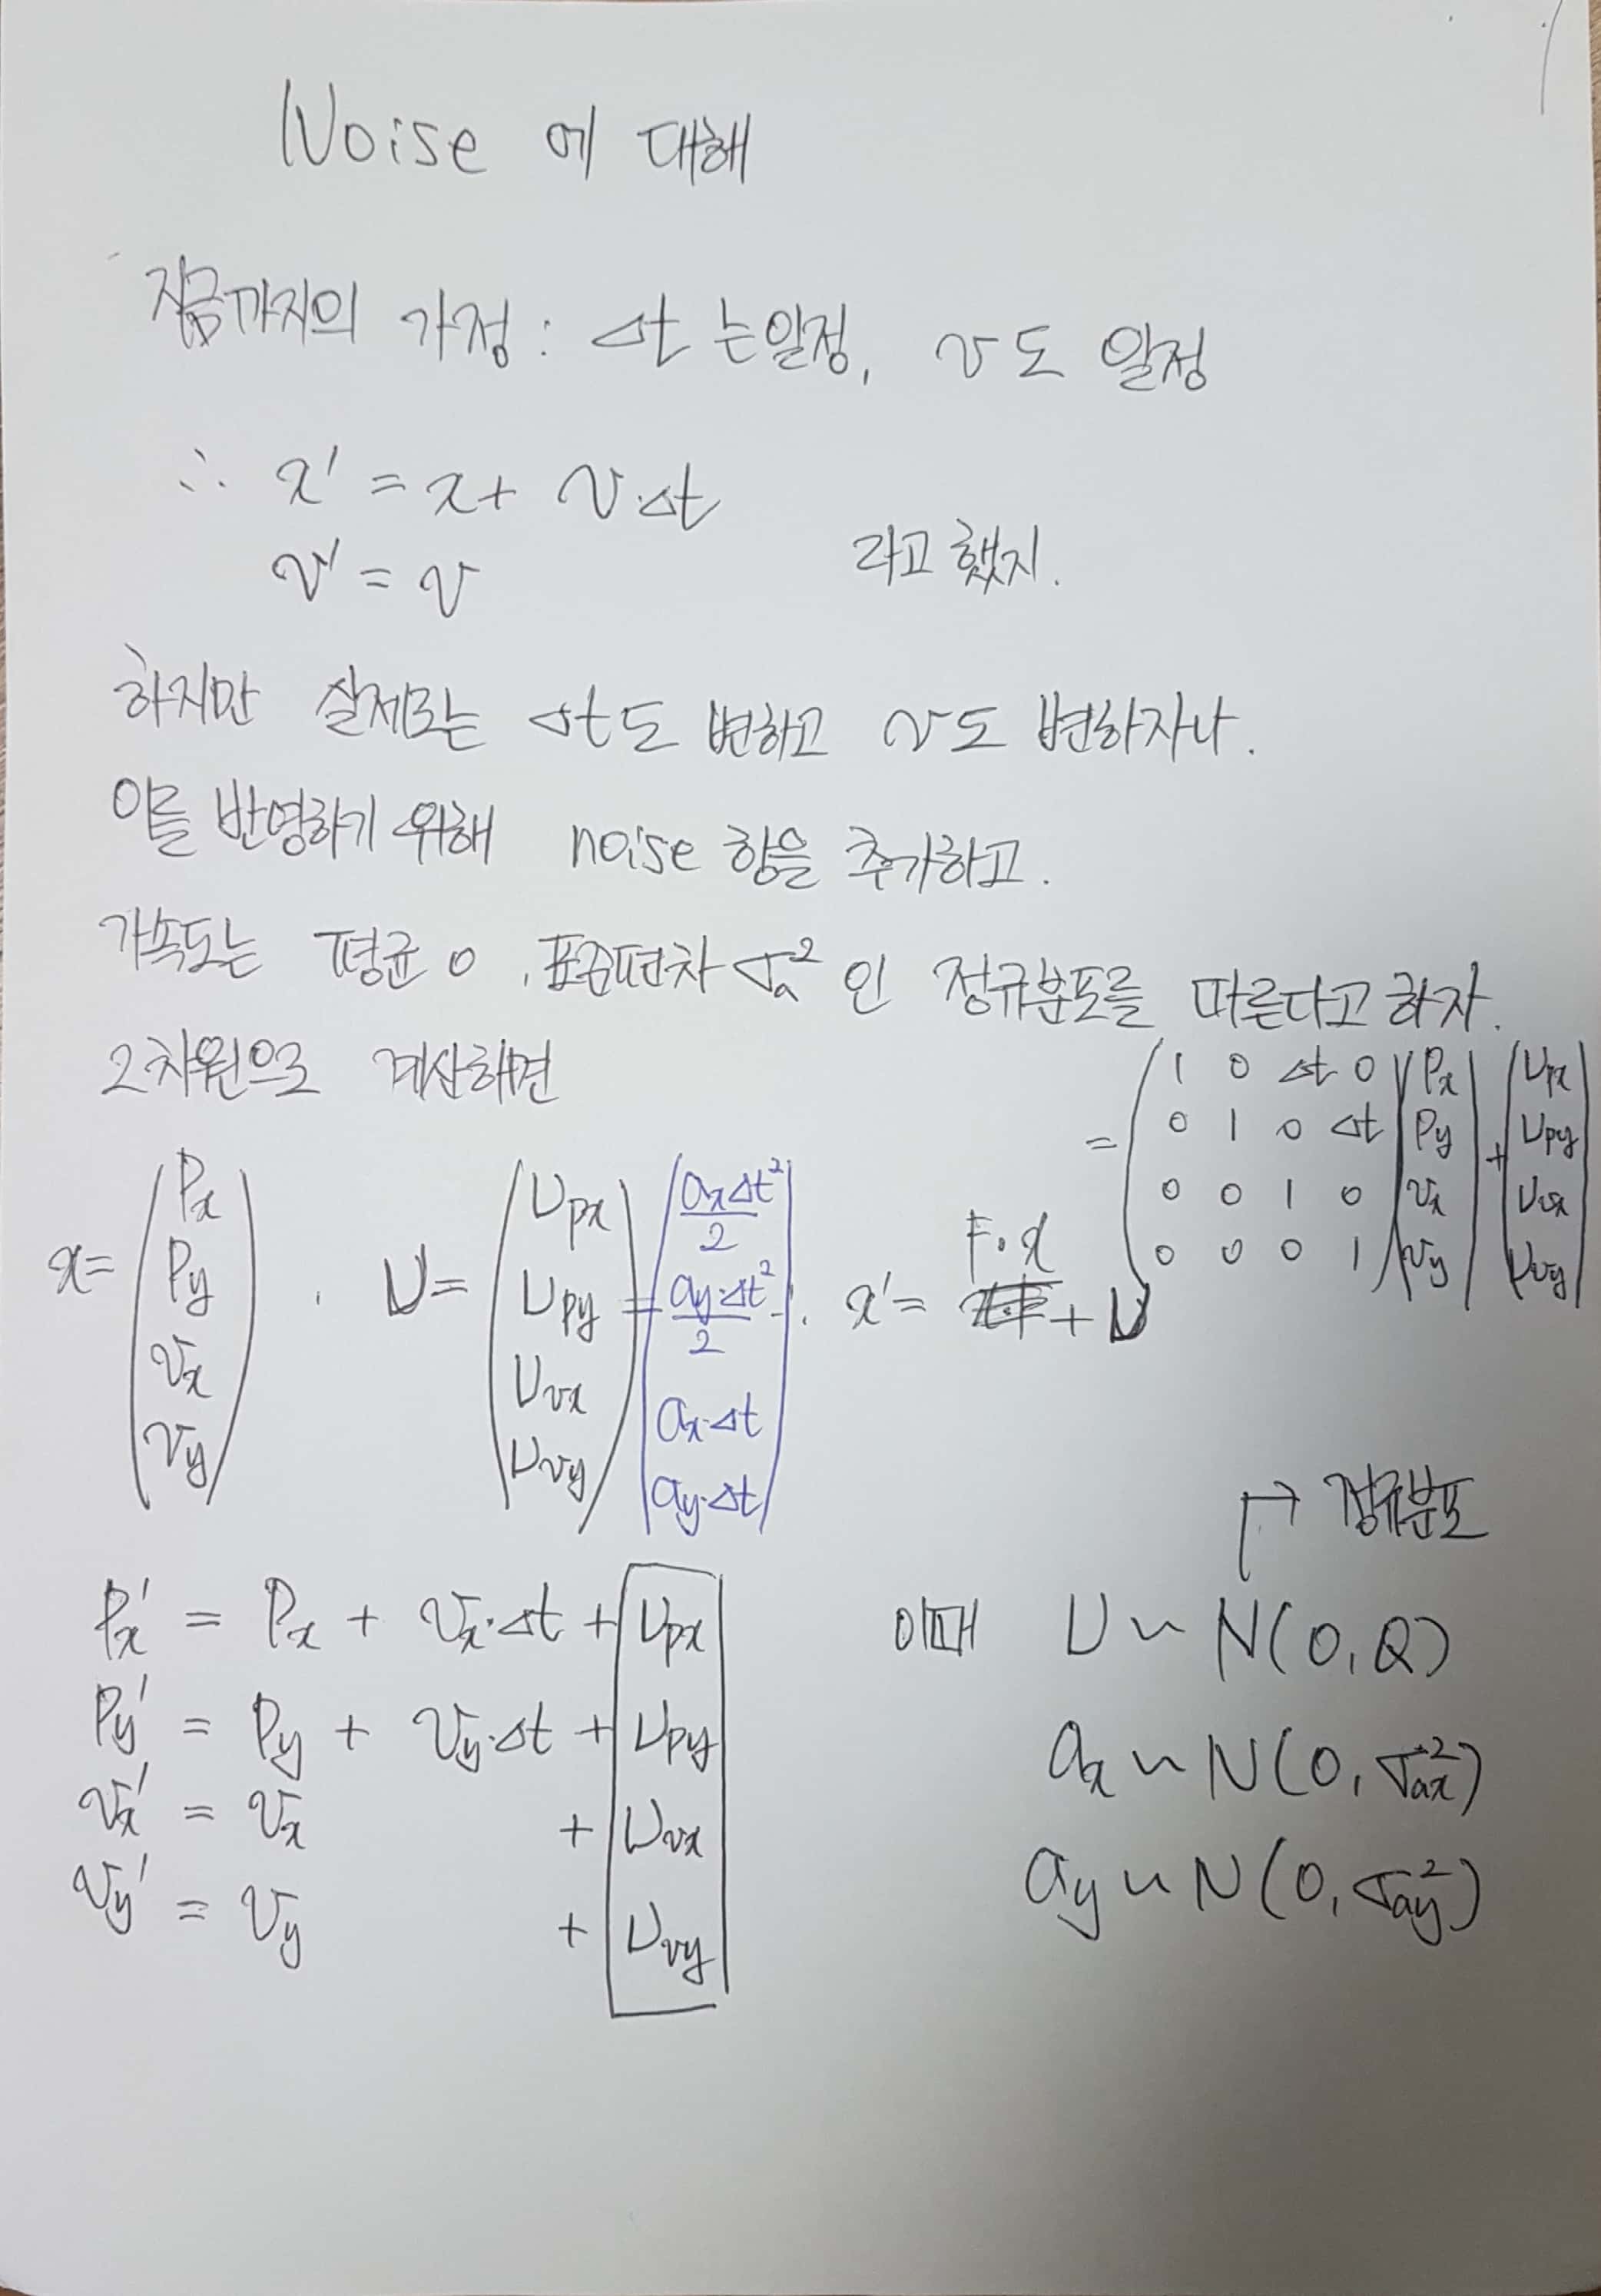 Noise 에 대해
지금까지의 가정 : Δt 는 일정, v도 일정
∴ x' = x + v·Δt
v' = v 라고 했지.
하지만 실제로는 Δt도 변하고 v도 변하자나.
이를 반영하기 위해 noise 항을 추가하고.
가속도는 평균 0, 표준편차 σa² 인 정규분포를 따른다고 하자.
2차원으로 계산하면
x = (Px Py vx vy) , ν = (νpx νpy νvx νvy) = (ax·Δt²/2 ay·Δt²/2 ax·Δt ay·Δt) , x' = F·x + ν
= (1 0 Δt 0
0 1 0 Δt
0 0 1 0
0 0 0 1) (Px Py vx vy) + (νpx νpy νvx νvy)
Px' = Px + vx·Δt + νpx
Py' = Py + vy·Δt + νpy
vx' = vx + νvx
vy' = vy + νvy
→ 정규분포
이때 ν ~ N(0, Q)
ax ~ N(0, σax²)
ay ~ N(0, σay²)